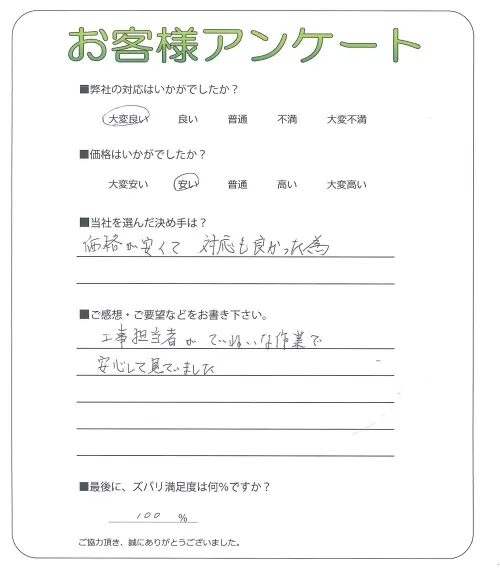 お客様アンケート
■弊社の対応はいかがでしたか？
大変良い 良い 普通 不満 大変不満
■価格はいかがでしたか？
大変安い 安い 普通 高い 大変高い
■当社を選んだ決め手は？
価格が安くて 対応も良かった為
■ご感想・ご要望などをお書き下さい。
工事担当者が ていねいな作業で
安心して見ていました
■最後に、ズバリ満足度は何％ですか？
100 %
ご協力頂き、誠にありがとうございました。